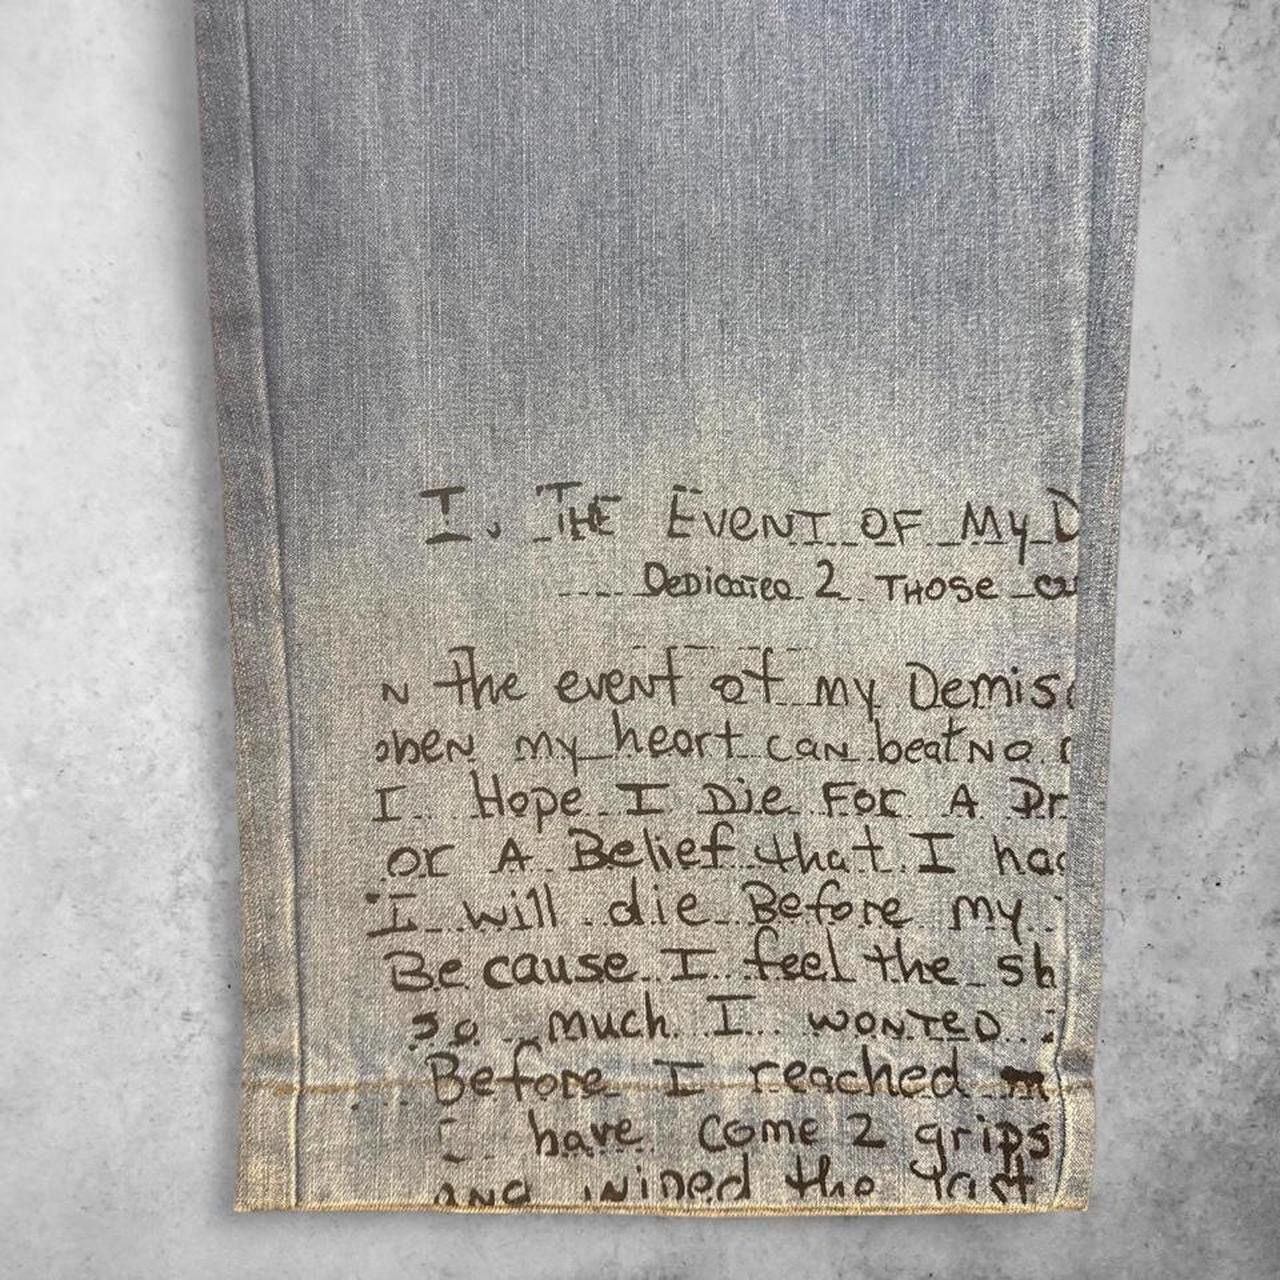 I. THE EVENT OF My D
DEDICATED 2 THOSE
N the event of my Demis
when my heart can beat NO
I Hope I Die FOR A Pr
or A Belief that I had
I will die Before my
Because I feel the sh
so much I WONTED
Before I reached m
I have come 2 grips
AND wiped the last